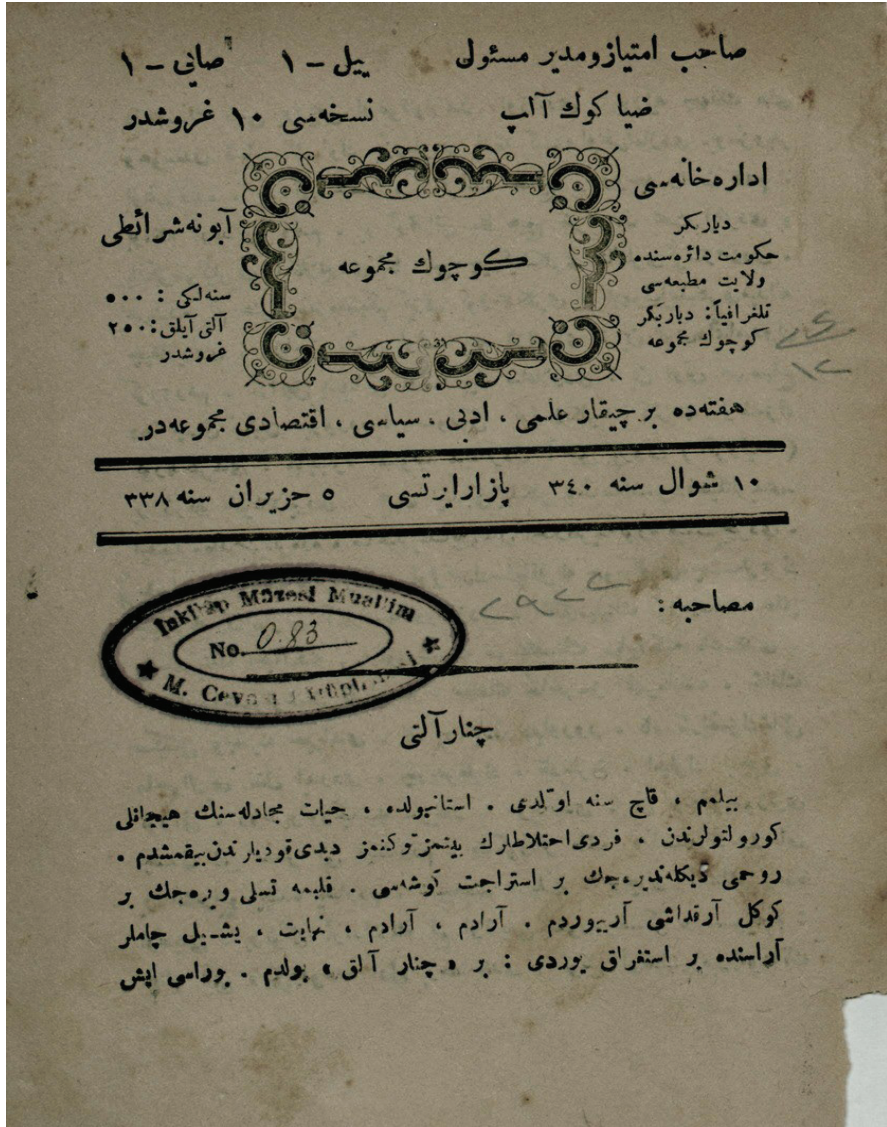 صاحب امتیاز و مدیر مسئول
ییل - ١
صانی - ١
ضیا کوك آلپ
نسخه‌سی ١٠ غروشدر
اداره‌خانه‌سی
دیاربکر
حکومت دائره‌سنده
ولایت مطبعه‌سی
تلغرافیاً: دیاربکر
کوچوك مجموعه
کوچوك مجموعه
آبونه شرائطی
سنه‌لکی : ٥٠٠
آلتی آیلق: ٢٥٠
غروشدر
هفته‌ده بر چیقار علمی ، ادبی ، سیاسی ، اقتصادی مجموعه‌در
١٠ شوال سنه ٣٤٠ پازارایرتسی ٥ حزیران سنه ٣٣٨
مصاحبه :
İnkılâp Müzesi Muallim
No. 083
M. Cev
چنار آلتی
بیلمم ، قاچ سنه اولدی . استانبولده ، حیات مجادله‌سنك هیجانلی
کورولتولرندن ، فردی احتلاطارك بیتمز توکنمز دیدی قودیلرندن بیقمشدم .
روحمی دیکله‌ندیره‌جك بر استراحت کوشه‌سی . قلبمه تسلی ویره‌جك بر
کوکل آرقداشی آرییوردم . آرادم ، آرادم ، نهایت ، یشیل چاملر
آراسنده بر استغراق یوردی : بر « چنار آلتی » بولدم . بوراسی ایش